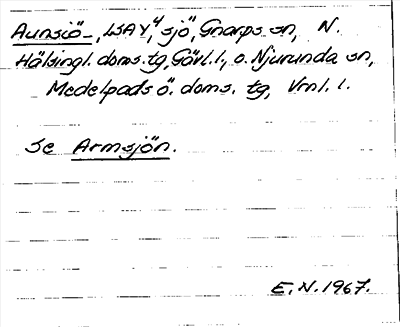 Aunsiö-, LSAY,4 sjö, Gnarps sn, N.
Hälsingl. doms. tg, Gävl. l., o. Njurunda sn,
Medelpads ö. doms. tg, Vrnl. l.
Se Armsjön.
E.N. 1967.